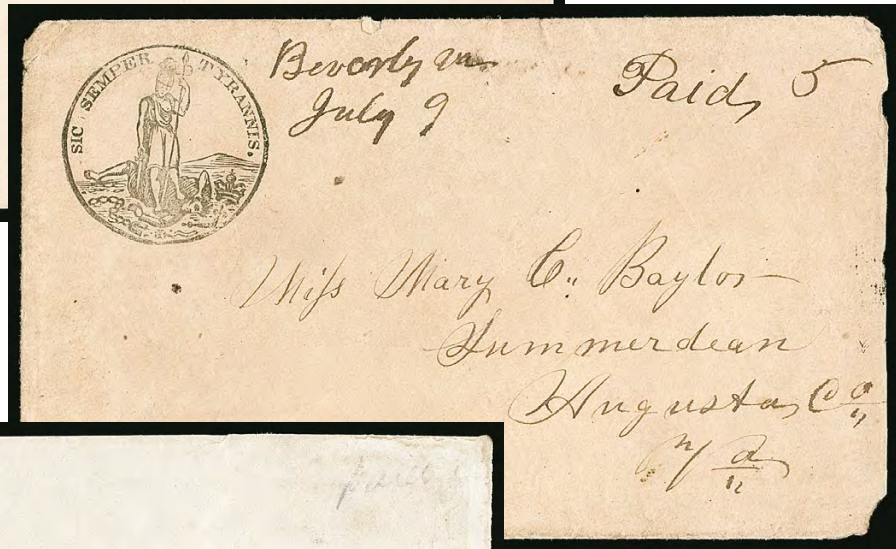 SIC SEMPER TYRANNIS.
Beverly Va
July 9
Paid, 5
Miss Mary C. Baylor
Summerdean
Augusta, Co
Va